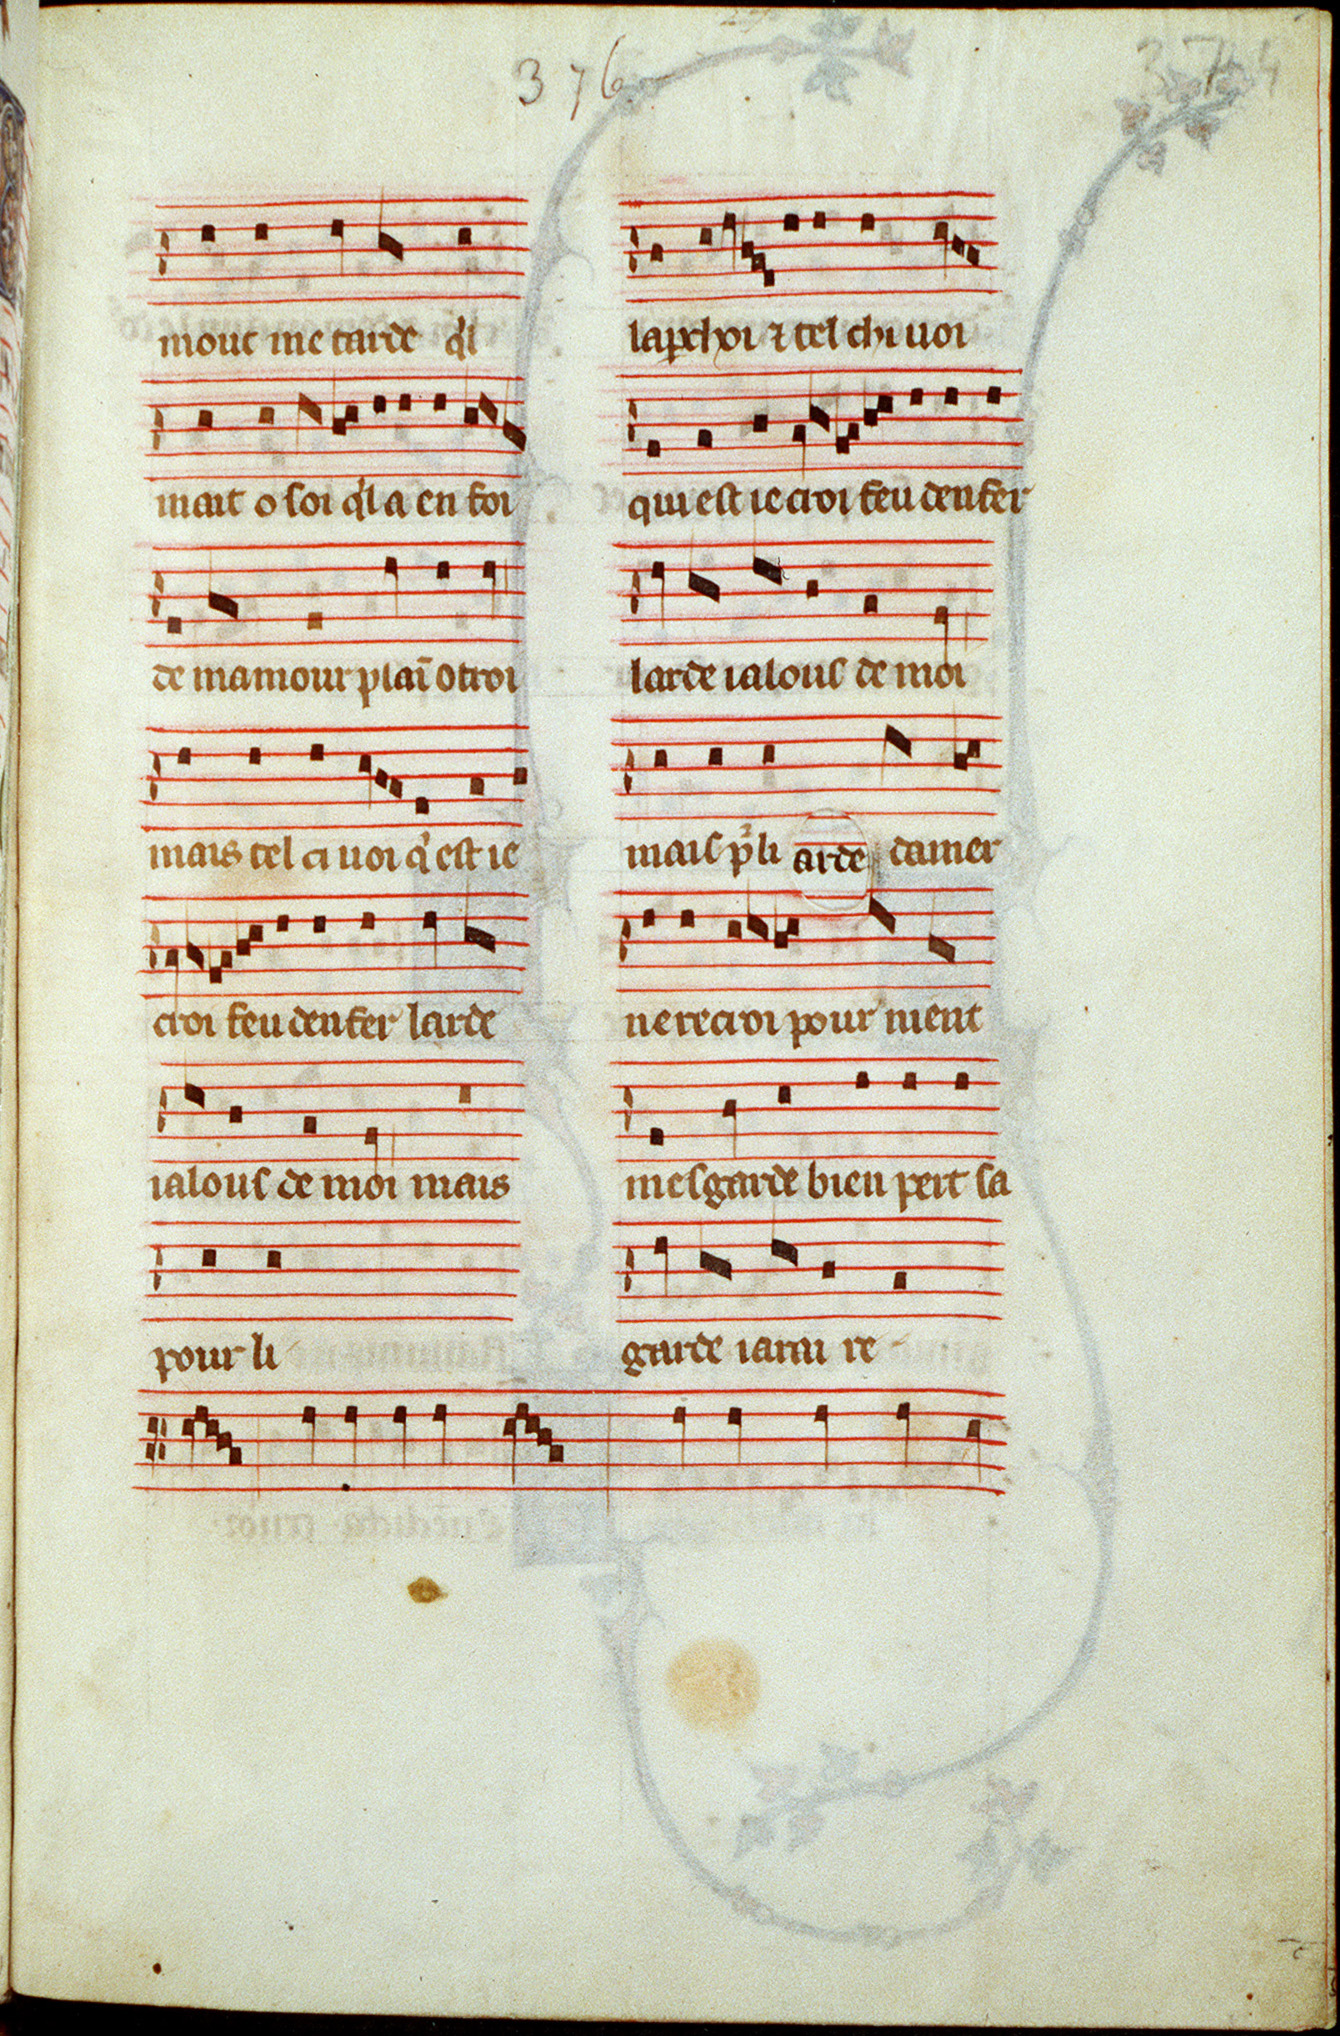 376
374
mout me tarde q'l
mait o soi q'l a en foi
de mamour plaī otroi
mais tel ci uoi q' est ie
croi feu denfer larde
ialous de moi mais
pour li
lapchoi ⁊ tel chi uoi
qui est ie croi feu denfer
larde ialous de moi
mais p'li arde damer
ne recroi pour nient
mesgarde bien pert sa
garde iarai re